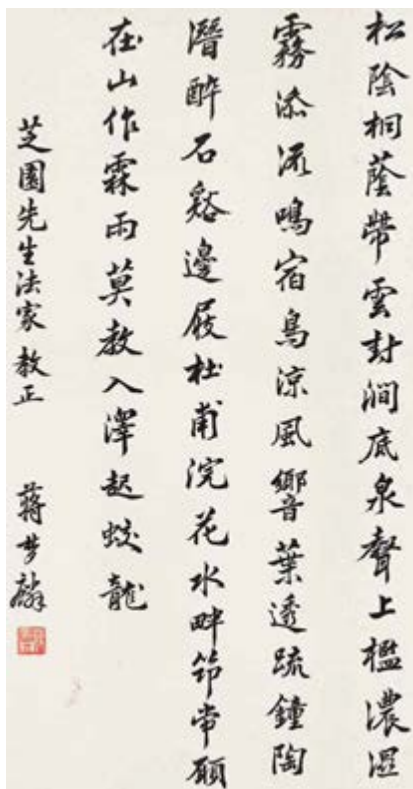 松陰桐蔭帶雲封澗底泉聲上檻濃溼
霧添流鳴宿鳥涼風響葉透疏鐘陶
潛醉石谿邊屐杜甫浣花水畔筇常願
在山作霖雨莫教入澤起蛟龍
芝園先生法家教正 蔣梦麟